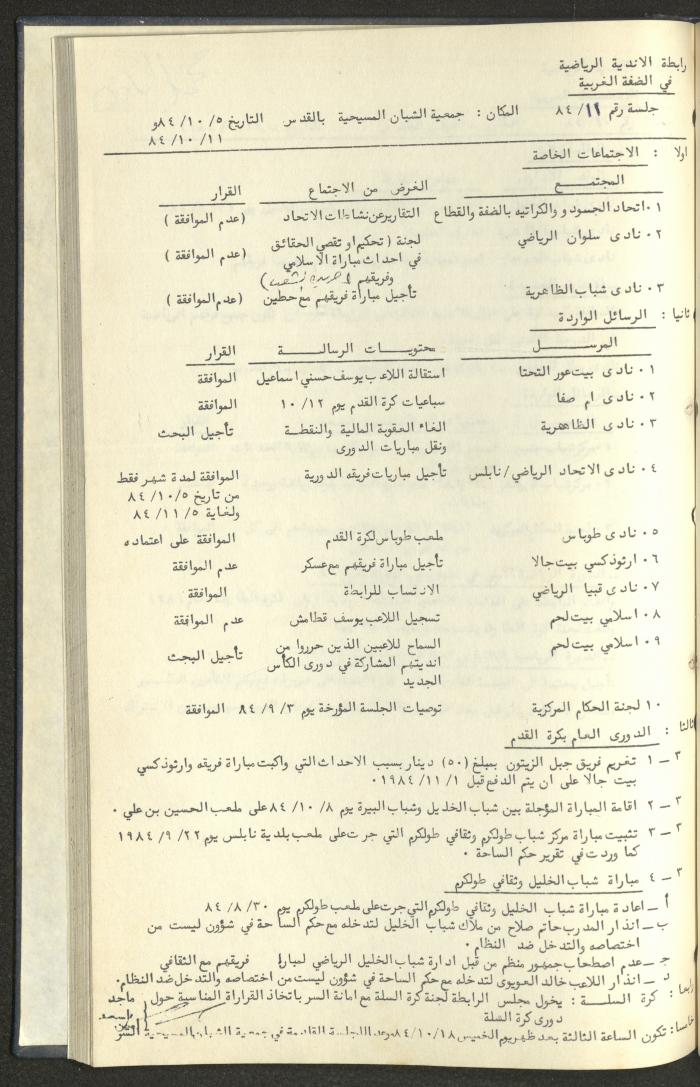 رابطة الاندية الرياضية
في الضفة الغربية
جلسة رقم ١١/ ٨٤ المكان : جمعية الشبان المسيحية بالقدس التاريخ ٥/ ١٠/ ٨٤ و
١١/ ١٠/ ٨٤
اولا : الاجتماعات الخاصة
المجتمــــع الغرض من الاجتماع القرار
١٠ اتحاد الجسودو والكراتيه بالضفة والقطاع التقاريرعن نشاطات الاتحاد (عدم الموافقة )
٢٠ نادى سلوان الرياضي لجنة ( تحكيم او تقصي الحقائق (عدم الموافقة )
في احداث مباراة الاسلامي
وفريقهم (
٣٠ نادى شباب الظاهرية تأجيل مباراة فريقهم مع حطين (عدم الموافقة )
ثانيا : الرسائل الواردة
المرســـــل محتويــات الرسالـــة القرار
١٠ نادى بيت عور التحتا استقالة اللاعب يوسف حسني اسماعيل الموافقة
٢٠ نادى ام صفا سباعيات كرة القدم يوم ١٢/ ١٠ الموافقة
٣٠ نادى الظاهرية الغاء العقوبة المالية والنقطــة تأجيل البحث
ونقل مباريات الدورى
٤٠ نادى الاتحاد الرياضي/ نابلس تأجيل مباريات فريقه الدورية الموافقة لمدة شهر فقط
من تاريخ ٥/ ١٠/ ٨٤
ولغاية ٥/ ١١/ ٨٤
٥٠ نادى طوباس ملعب طوباس لكرة القدم الموافقة على اعتماده
٦٠ ارثوذكسي بيت جالا تأجيل مباراة فريقهم مع عسكر عدم الموافقة
٧٠ نادى قبيا الرياضي الانتساب للرابطة الموافقة
٨٠ اسلامي بيت لحم تسجيل اللاعب يوسف قطامش عدم الموافقة
٩٠ اسلامي بيت لحم السماح للاعبين الذين حرروا من تأجيل البحث
انديتهم المشاركة في دورى الكأس
الجديد
١٠ لجنة الحكام المركزية توصيات الجلسة المؤرخة يوم ٣/ ٩/ ٨٤ الموافقة
ثالثا : الدورى العام بكرة القدم
٣ ــ ١ تغريم فريق جبل الزيتون بمبلغ (٥٠) دينار بسبب الاحداث التي واكبت مباراة فريقه وارثوذكسي
بيت جالا على ان يتم الدفع قبل ١/ ١١/ ١٩٨٤٠
٣ ــ ٢ اقامة المباراة المؤجلة بين شباب الخليل وشباب البيرة يوم ٨/ ١٠/ ٨٤ على ملعب الحسين بن علي ٠
٣ ــ ٣ تثبيت مباراة مركز شباب طولكرم وثقافي طولكرم التي جرت على ملعب بلدية نابلس يوم ٢٢/ ٩/ ١٩٨٤
كما وردت في تقرير حكم الساحة ٠
٣ ــ ٤ مباراة شباب الخليل وثقافي طولكرم
أ ــ اعادة مباراة شباب الخليل وثقافي طولكرم التي جرت على ملعب طولكرم يوم ٣٠/ ٨/ ٨٤
ب ــ انذار المدرب حاتم صلاح من ملاك شباب الخليل لتدخله مع حكم الساحة في شؤون ليست من
اختصاصه والتدخل ضد النظام ٠
جـ ــ عدم اصطحاب جمهور منظم من قبل ادارة شباب الخليل الرياضي لمباراة فريقهم مع الثقافي
د ــ انذار اللاعب خالد العويوى لتدخله مع حكم الساحة في شؤون ليست من اختصاصه والتدخل ضد النظام٠
رابعا : كرة السلـــة : يخول مجلس الرابطة لجنة كرة السلة مع امانة السر باتخاذ القرارات المناسبة حول
دورى كرة السلة
خامسا: تكون الساعة الثالثة بعد ظهر يوم الخميس ١٨/ ١٠/ ٨٤ موعد اللجلسة القادمة في جمعية الشبان المسيحية
ماجد
السر